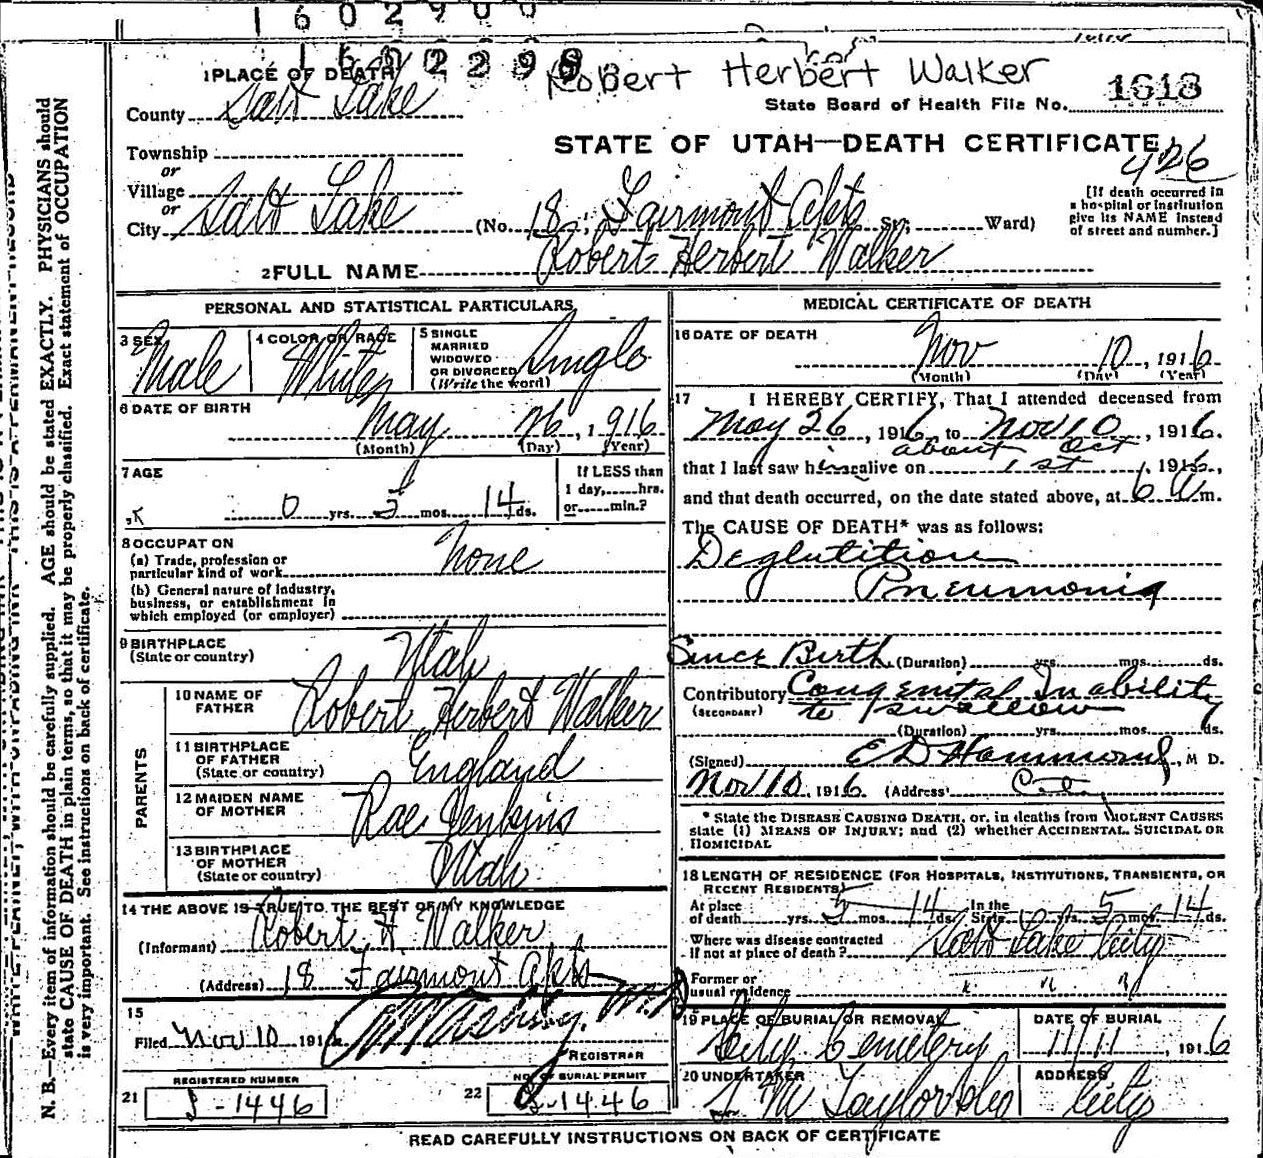 1602900
1602298
Robert Herbert Walker
1618
State Board of Health File No.
STATE OF UTAH—DEATH CERTIFICATE
426
1 PLACE OF DEATH
County Salt Lake
Township
or
Village
or
City Salt Lake (No. 18, Fairmont Apts St; Ward)
[If death occurred in
a hospital or institution
give its NAME instead
of street and number.]
2 FULL NAME Robert Herbert Walker
PERSONAL AND STATISTICAL PARTICULARS
3 SEX Male
4 COLOR OR RACE White
5 SINGLE
MARRIED
WIDOWED
OR DIVORCED
(Write the word) Single
6 DATE OF BIRTH
May 26, 1916
(Month) (Day) (Year)
7 AGE
0 yrs. 5 mos. 14 ds.
If LESS than
1 day, hrs.
or min.?
8 OCCUPATION
(a) Trade, profession or
particular kind of work None
(b) General nature of industry,
business, or establishment in
which employed (or employer)
9 BIRTHPLACE
(State or country) Utah
PARENTS
10 NAME OF
FATHER Robert Herbert Walker
11 BIRTHPLACE
OF FATHER
(State or country) England
12 MAIDEN NAME
OF MOTHER Rae Jenkins
13 BIRTHPLACE
OF MOTHER
(State or country) Utah
14 THE ABOVE IS TRUE TO THE BEST OF MY KNOWLEDGE
(Informant) Robert H Walker
(Address) 18 Fairmont Apts
15
Filed Nov 10 191 M.D
REGISTRAR
REGISTERED NUMBER
21 J-1446
NO. OF BURIAL PERMIT
22 J-1446
MEDICAL CERTIFICATE OF DEATH
16 DATE OF DEATH
Nov 10, 1916
(Month) (Day) (Year)
17 I HEREBY CERTIFY, That I attended deceased from
May 26, 1916, to Nov 10, 1916.
about Oct
that I last saw him alive on 1st, 1916,
and that death occurred, on the date stated above, at 6 a m.
The CAUSE OF DEATH* was as follows:
Deglutition
Pneumonia
Since Birth (Duration) yrs. mos. ds.
Contributory Congenital Inability
(SECONDARY) to swallow
(Duration) yrs. mos. ds.
(Signed) E D Hammond, M D.
Nov 10, 1916. (Address) City
* State the DISEASE CAUSING DEATH, or, in deaths from VIOLENT CAUSES
state (1) MEANS OF INJURY; and (2) whether ACCIDENTAL, SUICIDAL OR
HOMICIDAL
18 LENGTH OF RESIDENCE (FOR HOSPITALS, INSTITUTIONS, TRANSIENTS, OR
RECENT RESIDENTS)
At place
of death yrs. 5 mos. 14 ds. In the
State yrs. 5 mos. 14 ds.
Where was disease contracted
if not at place of death? Salt Lake City
Former or
usual residence " " "
19 PLACE OF BURIAL OR REMOVAL
City Cemetery
DATE OF BURIAL
11/11, 1916
20 UNDERTAKER
S M Taylor & Co
ADDRESS
City
READ CAREFULLY INSTRUCTIONS ON BACK OF CERTIFICATE
N. B.—Every item of information should be carefully supplied. AGE should be stated EXACTLY. PHYSICIANS should
state CAUSE OF DEATH in plain terms, so that it may be properly classified. Exact statement of OCCUPATION
is very important. See instructions on back of certificate.